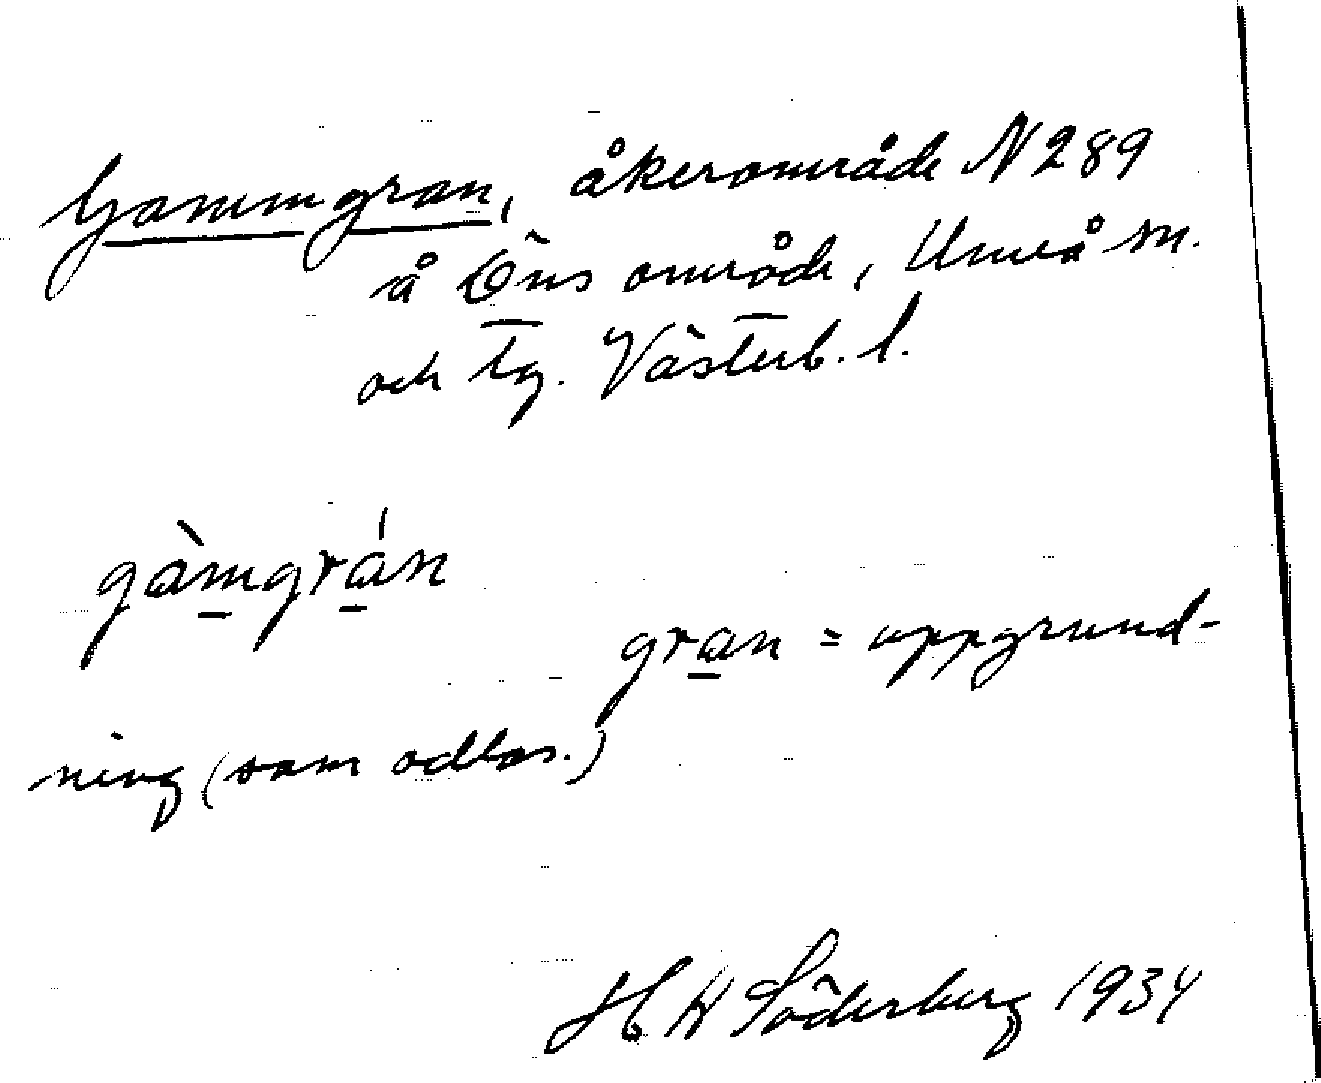 Gammgran, åkerområde N 289
å Öns område, Umeå sn.
och tg. Västerb. l.
gàmgrán
gran = uppgrund-
ning (som odlas.)
H W Söderberg 1934